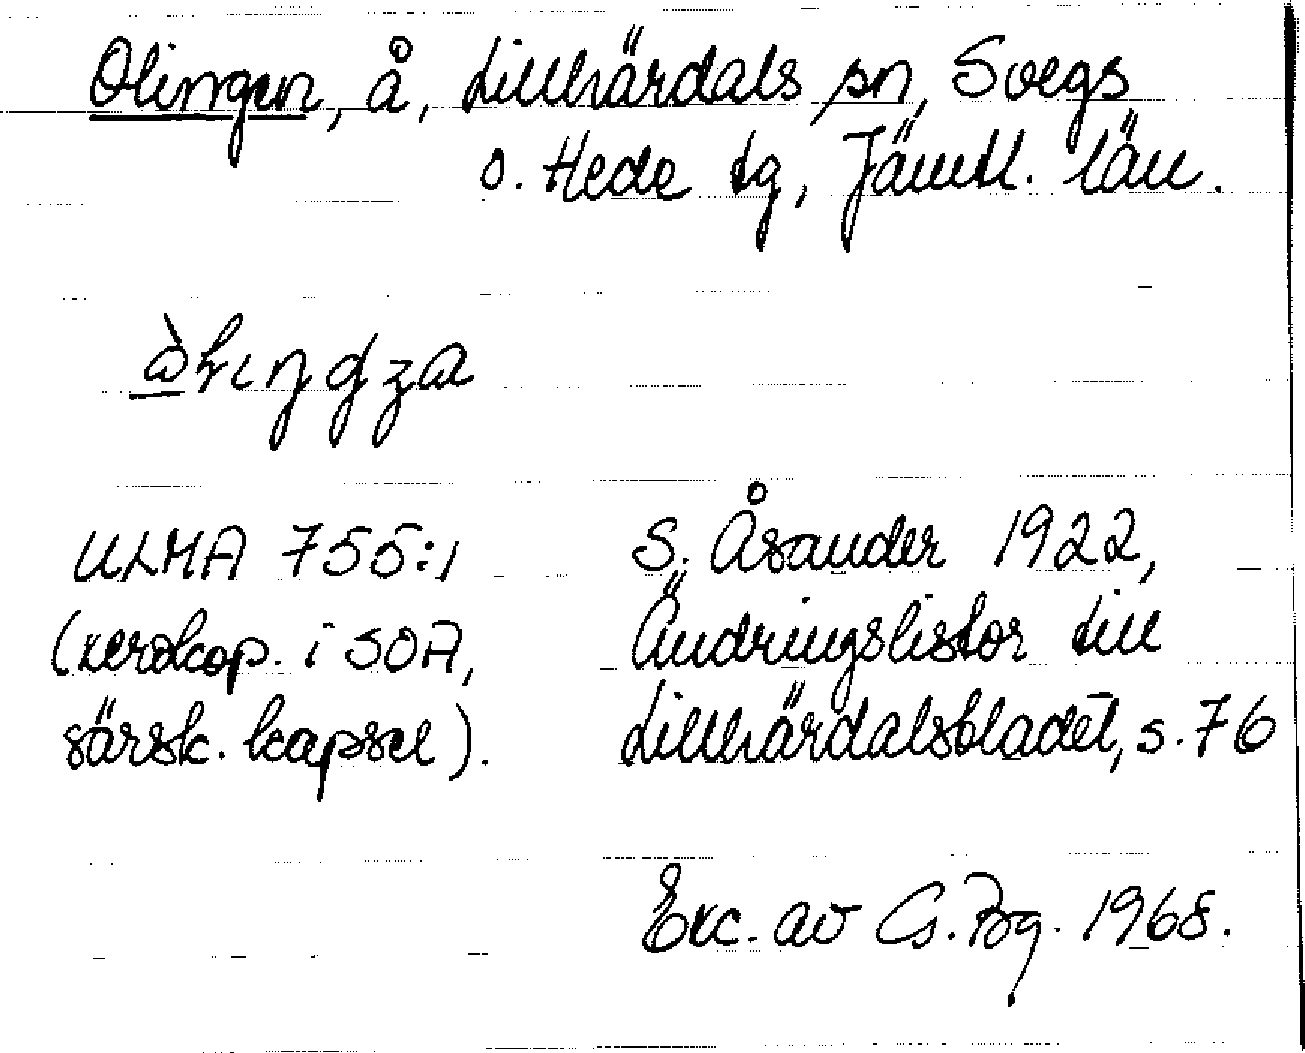 Olingen, å, Lillhärdals sn, Svegs
o. Hede tg, Jämtl. län.
ULMA 755:1
(xerokop. i SOA,
särsk. kapsel).
S. Åsander 1922,
Ändringslistor till
Lillhärdalsbladet, s. 76
Exc. av G. Bg. 1968.